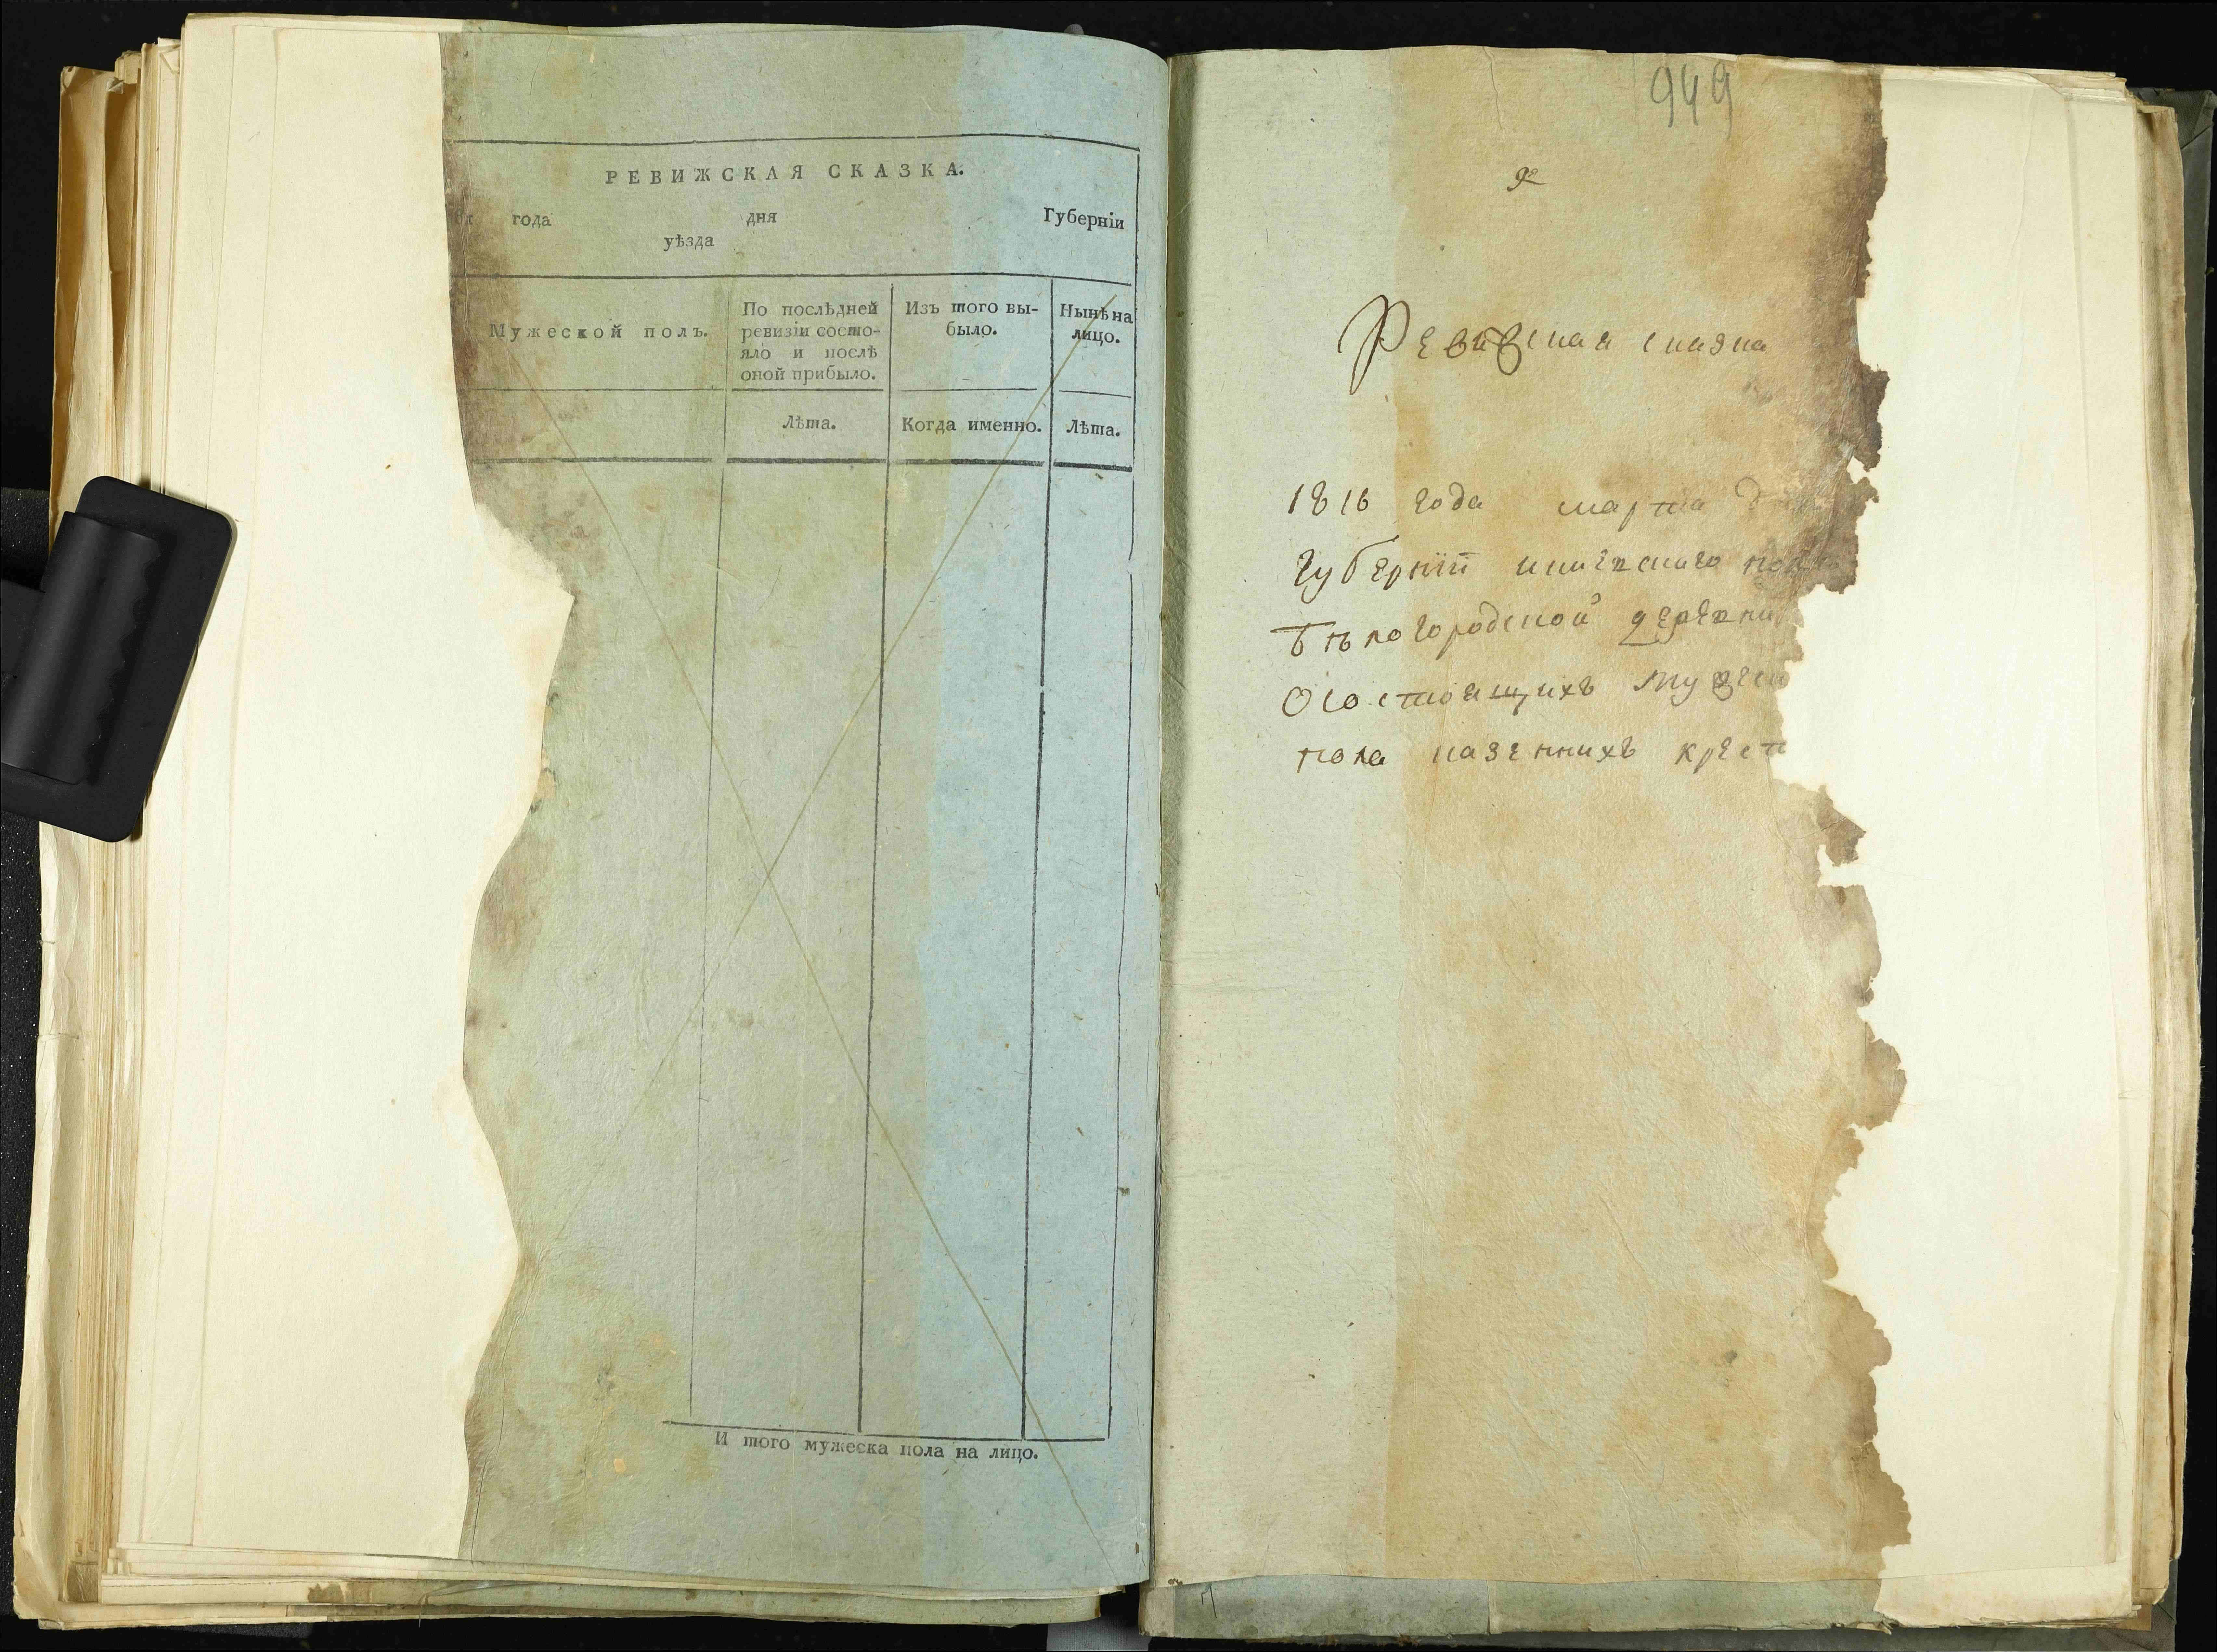 РЕВИЖСКАЯ СКАЗКА.
года дня Губерніи
уѣзда
Мужеской полъ.
По послѣдней
ревизіи состо-
яло и послѣ
оной прибыло.
Изъ того вы-
было.
Нынѣ на
лицо.
Лѣта.
Когда именно.
Лѣта.
И того мужеска пола на лицо.
949
Ревижская сказка
1816 года марта
Губерніи
Бѣлогородской деревни
О состоящихъ мужеск
пола казеннихъ крест